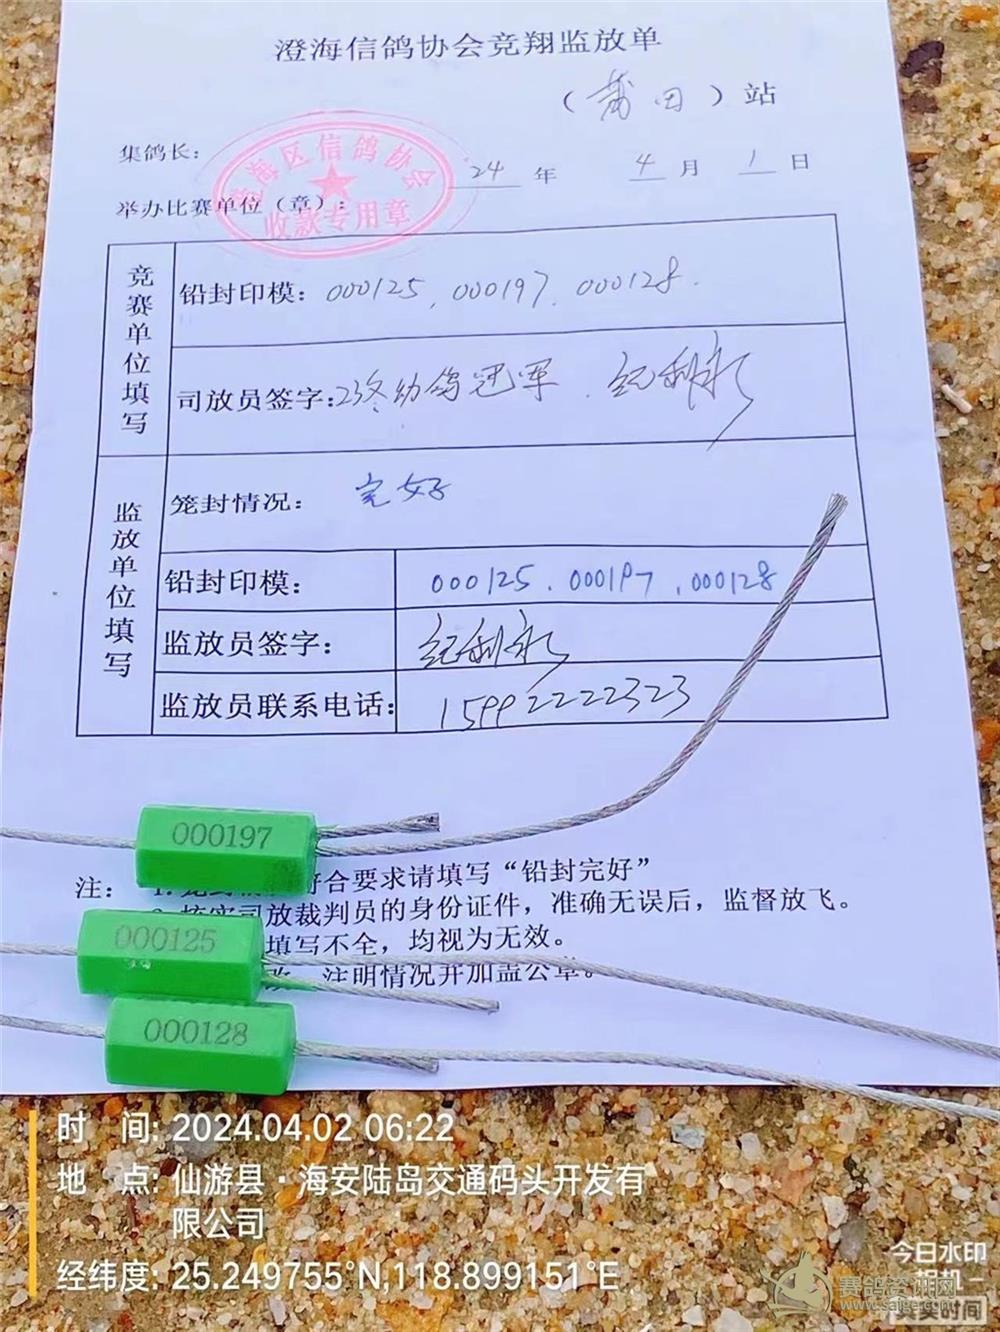 澄海信鸽协会竞翔监放单
（莆田）站
集鸽长：
24年 4月1日
举办比赛单位（章）：
澄海区信鸽协会
收款专用章
竞赛单位填写
铅封印模：000125.000197.000128.
司放员签字：23冬幼鸽冠军.纪利永
监放单位填写
笼封情况：完好
铅封印模：000125.000197.000128
监放员签字：纪利永
监放员联系电话：15992222323
000197
000125
000128
注：
符合要求请填写“铅封完好”
司放裁判员的身份证件，准确无误后，监督放飞。
填写不全，均视为无效。
注明情况并加盖公章。
时 间: 2024.04.02 06:22
地 点: 仙游县·海安陆岛交通码头开发有
限公司
经纬度: 25.249755°N,118.899151°E
今日水印
相机
真实时间
赛鸽资讯网
www.saige.com